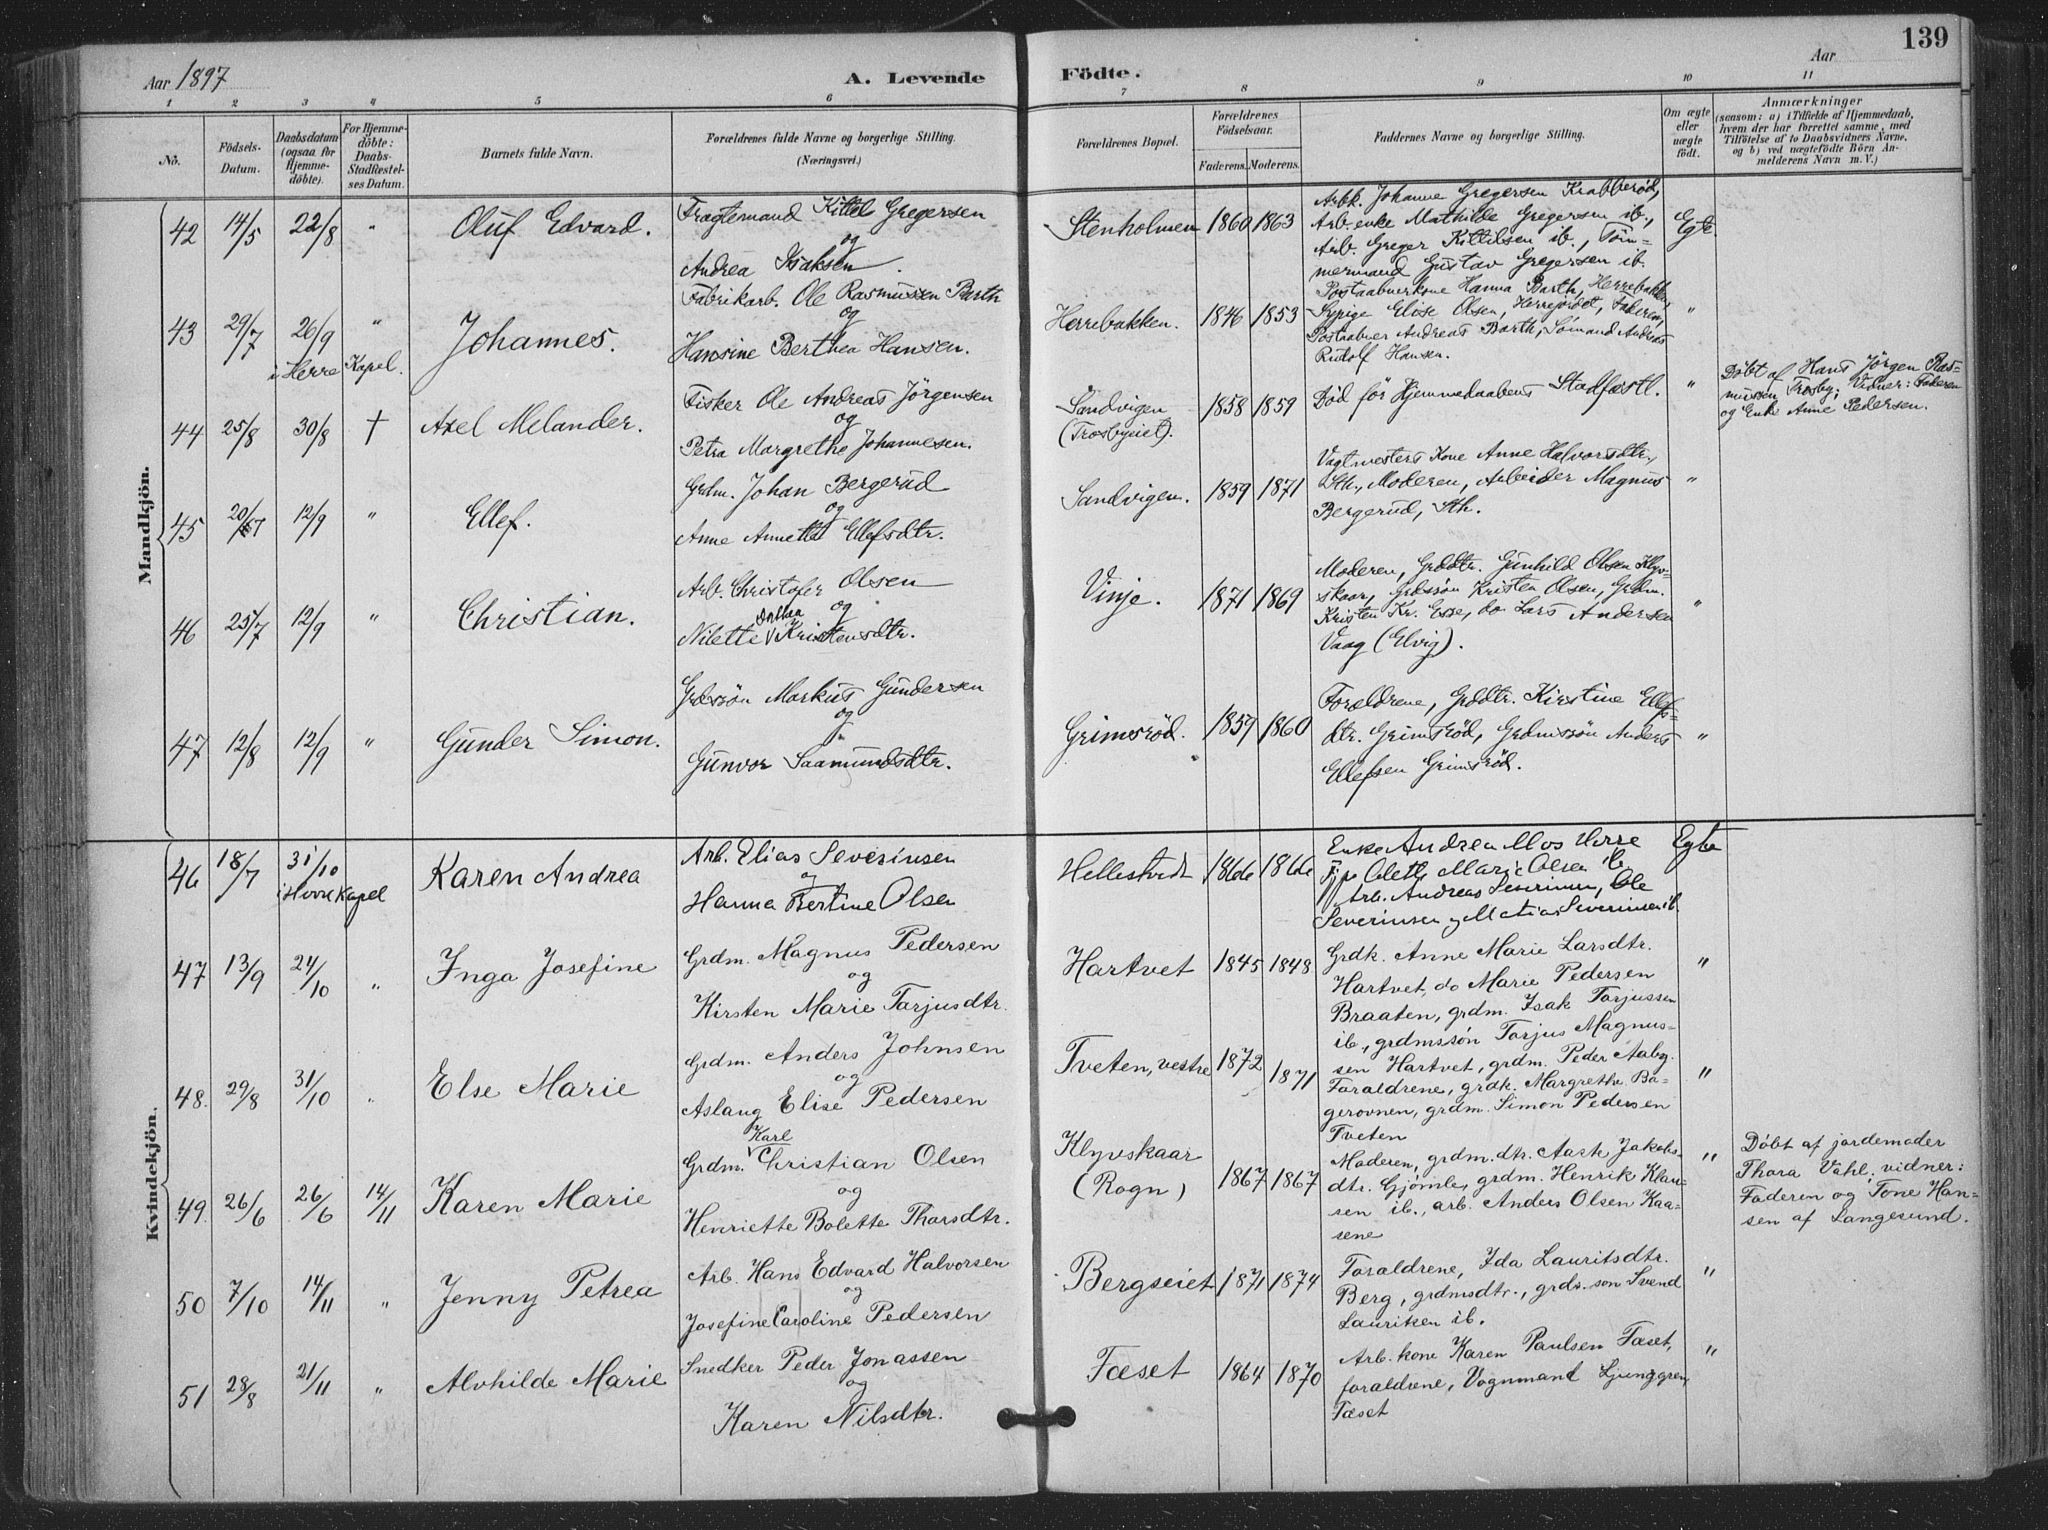 139
Aar 1897
A. Levende
Födte.
Aar
1 2 3 4 5 6 7 8 9 10 11
No.
Födsels-
Datum.
Daabsdatum
(ogsaa for
Hjemme-
döbte).
For Hjemme-
döbte:
Daabs-
Stadfæstel-
ses Datum.
Barnets fulde Navn.
Forældrenes fulde Navne og borgerlige Stilling.
(Næringsvei.)
Forældrenes Bopæl.
Forældrenes
Födselsaar.
Faderens. Moderens.
Faddernes Navne og borgerlige Stilling.
Om ægte
eller
uægte
födt.
Anmærkninger
(saasom: a) i Tilfælde af Hjemmedaab,
hvem der har forrettet samme, med
Tilföielse af to Daabsvidners Navne,
og b) ved uægtefödte Börn An-
melderens Navn m. V.)
Mandkjön.
42 14/5 22/8 " Oluf Edvard.
Fragtemand Kittel Gregersen
og
Andrea Isaksen.
Stenholmen 1860 1863
Arbk. Johanne Gregersen Krabberød,
Arb. enke Mathilde Gregersen ib.,
Arb. Greger Kittilsen ib., Töm-
mermand Gustav Gregersen ib.
Egte.
43 29/7 26/9 " Johannes.
i Herre Kapel.
Fabrikarb. Ole Rasmussen Barth
og
Hansine Berthea Hansen.
Herrebakken. 1846 1853
Postaabnerkone Hanna Barth, Herrebakken
Sypige Elise Olsen, Herrejordet, Faderen,
Postaabner Andreas Barth, Sömand Andreas
Rudolf Hansen.
"
44 25/8 30/8 † Axel Melander.
Fisker Ole Andreas Jörgensen
og
Petra Margrethe Johannesen.
Sandvigen
(Trosbyeiet).
1858 1859
Död för Hjemmedaabens Stadfæstl.
"
Döbt af Hans Jörgen Ras-
mussen Trosby; Vidner: Faderen
og Enke Anne Pedersen.
45 20/7 12/9 " Ellef.
Grdm. Johan Bergerud
og
Anne Annette Ellefsdtr.
Sandvigen. 1859 1871
Vagtmesters Kone Anne Halvorsdtr.,
Sth., Moderen, Arbeider Magnus
Bergerud, Sth.
"
46 25/7 12/9 " Christian.
Arb. Christofer Olsen
og
Nilette Dorthea Kristensdtr.
Vinje. 1871 1869
Moderen, Grddtr. Gunhild Olsen Klyv-
skaar, Grdssön Kristen Olsen, Grdm.
Kristen Kr. Esse, do Lars Andersen
Vaag (Elvig).
"
47 12/8 12/9 " Gunder Simon.
Grdssön Markus Gundersen
og
Gunvor Saamundsdtr.
Grimsröd. 1859 1860
Forældrene, Grddtr. Kirstine Ellefs-
dtr. Grimsröd, Grdmssön Anders
Ellefsen Grimsröd.
"
Kvindekjön.
46 18/7 31/10 Karen Andrea
i Herre Kapel
Arb. Elias Severinsen
og
Hanna Bertine Olsen
Hellestvedt 1866 1866
Enke Andrea Mos Herre
Pige Olette Marie Olsen ib
Arb. Andreas Severinsen, Ole
Severinsen og Matias Severinsen ib.
Egte
47 13/9 24/10 " Inga Josefine
Grdm. Magnus Pedersen
og
Kirsten Marie Tarjusdtr.
Hartvet 1845 1848
Grdk. Anne Marie Larsdtr.
Hartvet, do Marie Pedersen
Braaten, grdm. Isak Tarjussen
ib., grdmssön Tarjus Magnus-
sen Hartvet, grdm. Peder Aaby
"
48. 29/8 31/10 " Else Marie
Grdm. Anders Johnsen
og
Aslaug Elise Pedersen
Tveten, vestre 1872 1871
Foraldrene, grdk. Margrethe Ba-
gerovnen, grdm. Simon Pedersen
Tveten
"
49. 26/6 26/6 14/11 Karen Marie
Grdm. Karl Christian Olsen
og
Henriette Bolette Thorsdtr.
Klyvskaar
(Rogn)
1867 1867
Moderen, grdm. dtr. Aaste Jakobs-
dtr. Gjömle, grdm. Henrik Klau-
sen ib., arb. Anders Olsen Kaa-
sene
"
Döbt af jordemoder
Thora Vahl; vidner:
Faderen og Tone Han-
sen af Langesund.
50 7/10 14/11 " Jenny Petrea
Arb. Hans Edvard Halvorsen
og
Josefine Caroline Pedersen
Bergseiet 1871 1874
Foraldrene, Ida Lauritsdtr.
Berg, grdmsdtr., grds. son Svend
Lauritsen ib.
"
51 28/8 21/11 " Alvhilde Marie
Snedker Peder Jonassen
og
Karen Nilsdtr.
Fæset 1864 1870
Arb. kone Karen Paulsen Fæset,
foraldrene, Vognmand Ljunggren,
Fæset
"